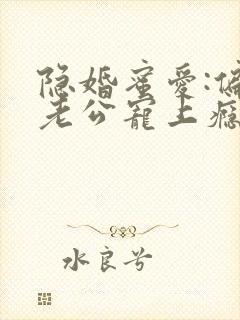 隐婚蜜爱:偏
老公寵上瘾
水良兮